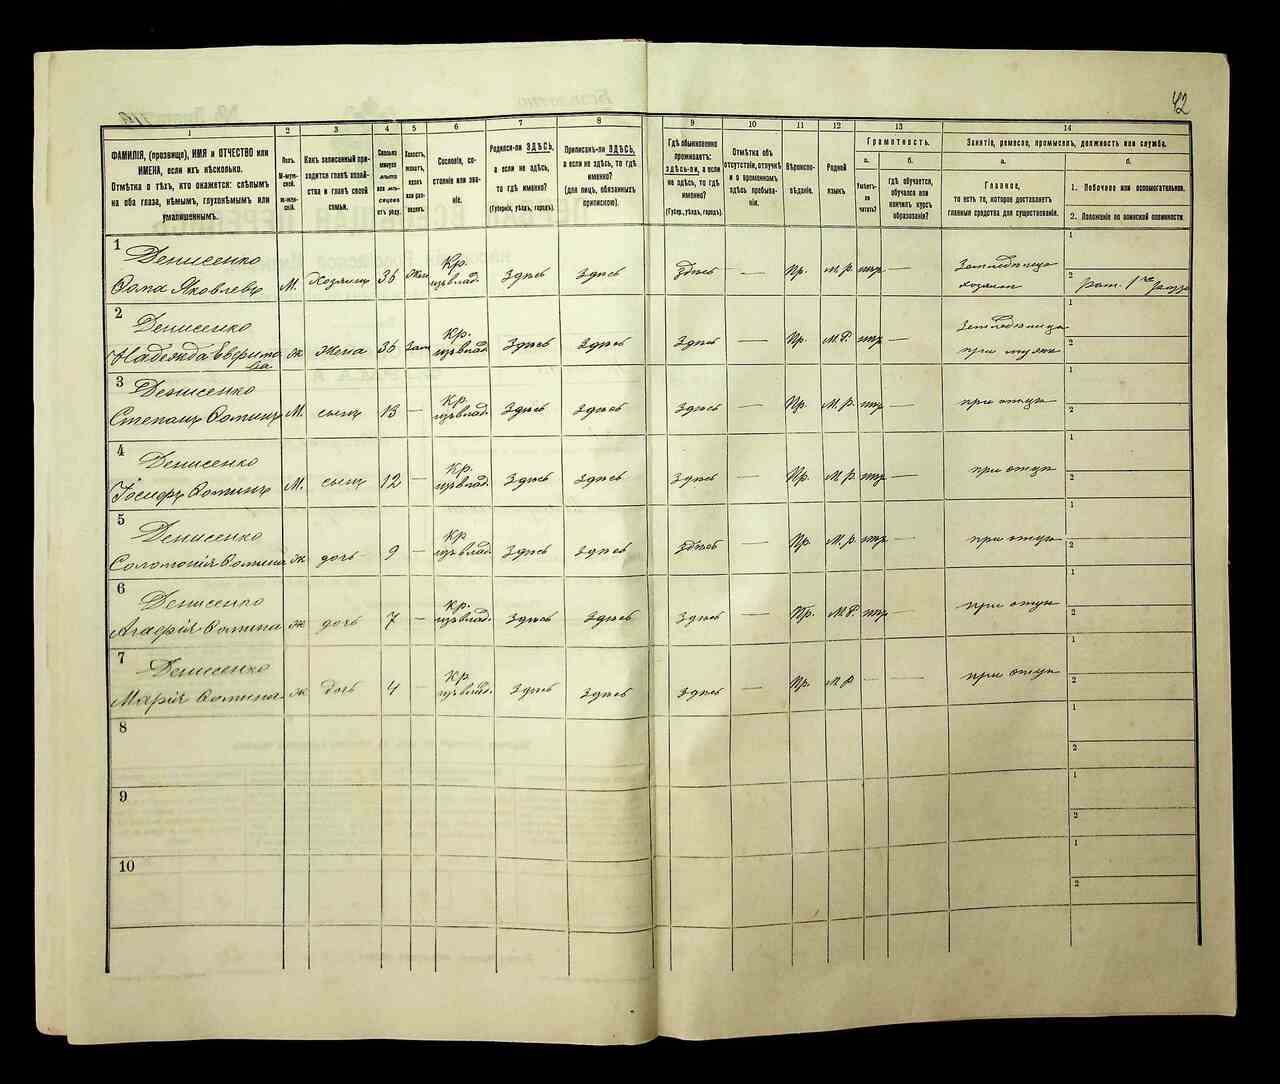 42
1
2
3
4
5
6
7
8
9
10
11
12
13
14
ФАМИЛІЯ, (прозвище), ИМЯ и ОТЧЕСТВО или
ИМЕНА, если ихъ нѣсколько.
Отмѣтка о тѣхъ, кто окажется: слѣпымъ
на оба глаза, нѣмымъ, глухонѣмымъ или
умалишеннымъ.
Полъ.
М-муж-
ской.
Ж-жен-
скій.
Какъ записанный при-
ходится главѣ хозяй-
ства и главѣ своей
семьи.
Сколько
минуло
лѣтъ
или мѣ-
сяцевъ
отъ роду.
Холостъ,
женатъ,
вдовъ
или раз-
веденъ.
Сословіе, со-
стояніе или зва-
ніе.
Родился-ли ЗДѢСЬ,
а если не здѣсь,
то гдѣ именно?
(Губернія, уѣздъ, городъ).
Приписанъ-ли ЗДѢСЬ,
а если не здѣсь, то гдѣ
именно?
(Для лицъ, обязанныхъ
припискою).
Гдѣ обыкновенно
проживаетъ:
здѣсь-ли, а если
не здѣсь, то гдѣ
именно?
(Губер., уѣздъ, городъ).
Отмѣтка объ
отсутствіи, отлучкѣ
и о временномъ
здѣсь пребыва-
ніи.
Вѣроиспо-
вѣданіе.
Родной
языкъ.
Грамотность.
а.
Умѣетъ-
ли
читать?
б.
гдѣ обучается,
обучался или
кончилъ курсъ
образованія?
Занятіе, ремесло, промыселъ, должность или служба.
а.
Главное,
то есть то, которое доставляетъ
главныя средства для существованія.
б.
1. Побочное или вспомогательное.
2. Положеніе по воинской повинности.
1
Денисенко
Ѳома Яковлевъ М. Хозяинъ 36 Жен Кр. изъ влад. Здѣсь Здѣсь Здѣсь — Пр. М. Р. нѣтъ —
хозяинъ
1
2
2
Денисенко
Надежда ж жена 36 Зам Кр. изъ влад. Здѣсь Здѣсь Здѣсь — Пр. М. Р. нѣтъ —
при мужѣ
1
2
3
Денисенко
Степанъ Ѳоминъ М. сынъ 13 — Кр. изъ влад. Здѣсь Здѣсь Здѣсь — Пр. М. Р. нѣтъ — при отцѣ
1
2
4
Денисенко
Іосифъ Ѳоминъ М. сынъ 12 — Кр. изъ влад. Здѣсь Здѣсь Здѣсь — Пр. М. Р. нѣтъ — при отцѣ
1
2
5
Денисенко
Соломонія Ѳомина ж дочь 9 — Кр. изъ влад. Здѣсь Здѣсь Здѣсь — Пр. М. Р. нѣтъ — при отцѣ
1
2
6
Денисенко
Агафія Ѳомина ж дочь 7 — Кр. изъ влад. Здѣсь Здѣсь Здѣсь — Пр. М. Р. нѣтъ — при отцѣ
1
2
7
Денисенко
Марія Ѳомина ж дочь 4 — Кр. изъ влад. Здѣсь Здѣсь Здѣсь — Пр. М Р — — при отцѣ
1
2
8
1
2
9
1
2
10
1
2